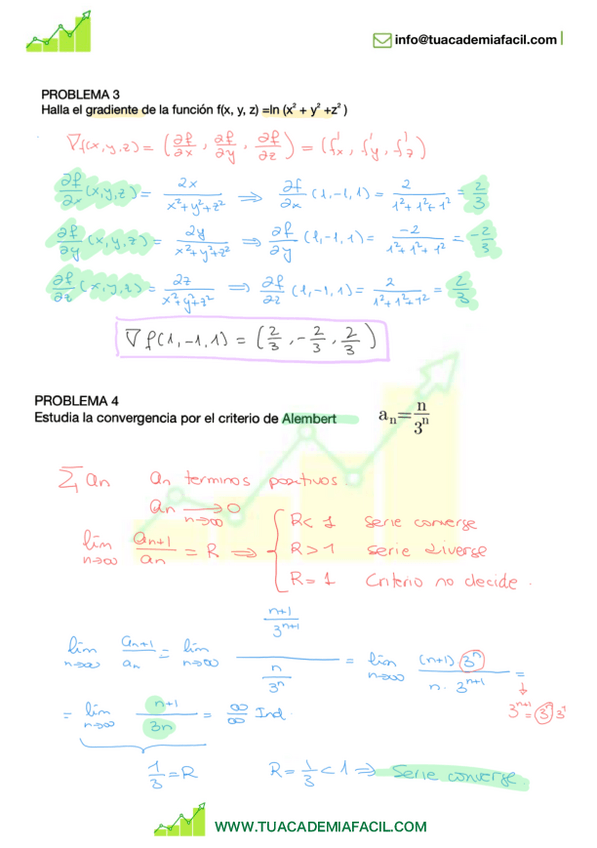 info@tuacademiafacil.com
PROBLEMA 3
Halla el gradiente de la función f(x, y, z) =ln (x² + y² +z² )
∇f(x,y,z) = (∂f/∂x , ∂f/∂y , ∂f/∂z) = (f'x , f'y , f'z)
∂f/∂x (x,y,z) = 2x/(x²+y²+z²) ⟹ ∂f/∂x (1,-1,1) = 2/(1²+1²+1²) = 2/3
∂f/∂y (x,y,z) = 2y/(x²+y²+z²) ⟹ ∂f/∂y (1,-1,1) = -2/(1²+1²+1²) = -2/3
∂f/∂z (x,y,z) = 2z/(x²+y²+z²) ⟹ ∂f/∂z (1,-1,1) = 2/(1²+1²+1²) = 2/3
∇f(1,-1,1) = (2/3 , -2/3 , 2/3)
PROBLEMA 4
Estudia la convergencia por el criterio de Alembert aₙ= n/3ⁿ
Σ an an terminos positivos
an ⟶ 0 n→∞
lim n→∞ an+1/an = R ⟹ { R < 1 serie converge
R > 1 serie diverge
R = 1 Criterio no decide.
lim n→∞ an+1/an = lim n→∞ ((n+1)/3ⁿ⁺¹)/(n/3ⁿ) = lim n→∞ (n+1)·3ⁿ/(n·3ⁿ⁺¹) =
3ⁿ⁺¹ = 3ⁿ·3¹
= lim n→∞ (n+1)/3n = ∞/∞ Ind.
1/3 = R R = 1/3 < 1 ⟹ Serie converge.
WWW.TUACADEMIAFACIL.COM